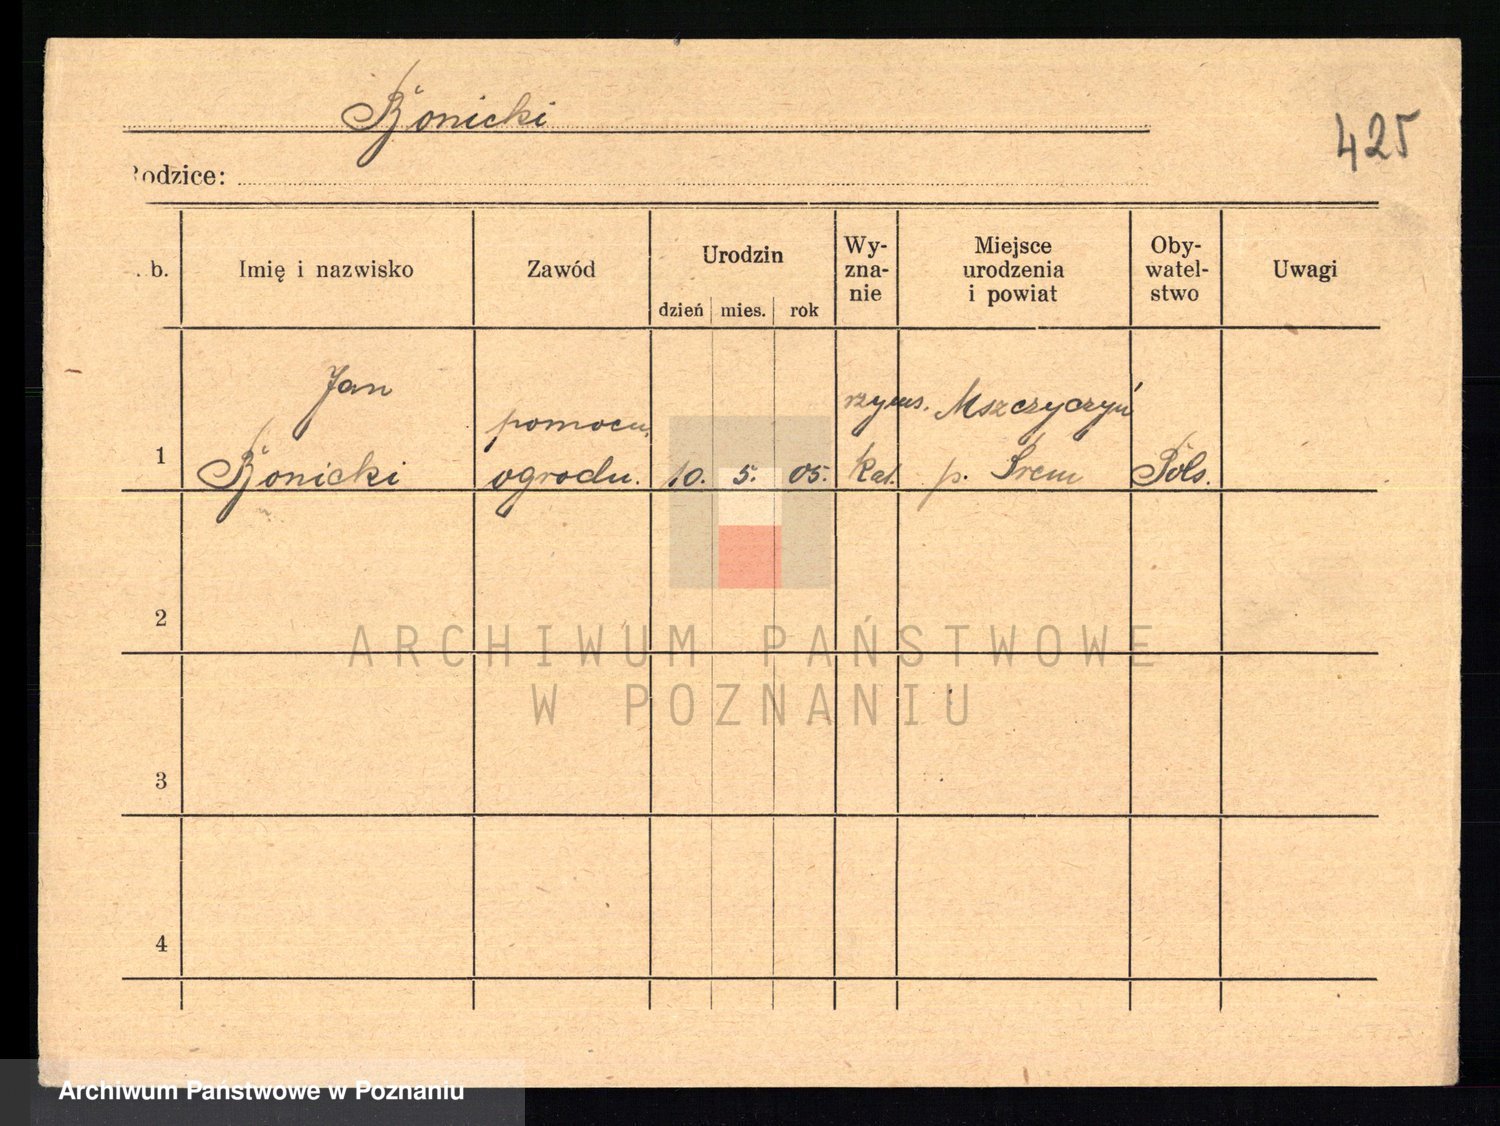 Bonicki
425
Rodzice:
. b.
Imię i nazwisko
Zawód
Urodzin
dzień mies. rok
Wy-
zna-
nie
Miejsce
urodzenia
i powiat
Oby-
watel-
stwo
Uwagi
1
Jan
Bonicki
pomocn.
ogrodn.
10. 5. 05.
rzyms.
Kat.
Mszczyczyn
p. Śrem
Pols.
2
3
4
ARCHIWUM PAŃSTWOWE
W POZNANIU
Archiwum Państwowe w Poznaniu